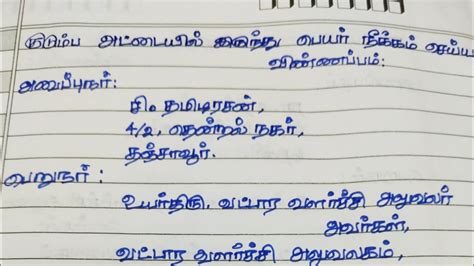 குடும்ப அட்டையில் இருந்து பெயர் நீக்கம் செய்ய
விண்ணப்பம்:
அனுப்புநர்:
சி. தமிழரசன்,
4/2, தென்றல் நகர்,
தஞ்சாவூர்.
பெறுநர் :
உயர்திரு. வட்டார வளர்ச்சி அலுவலர்
அவர்கள்,
வட்டார வளர்ச்சி அலுவலகம்,